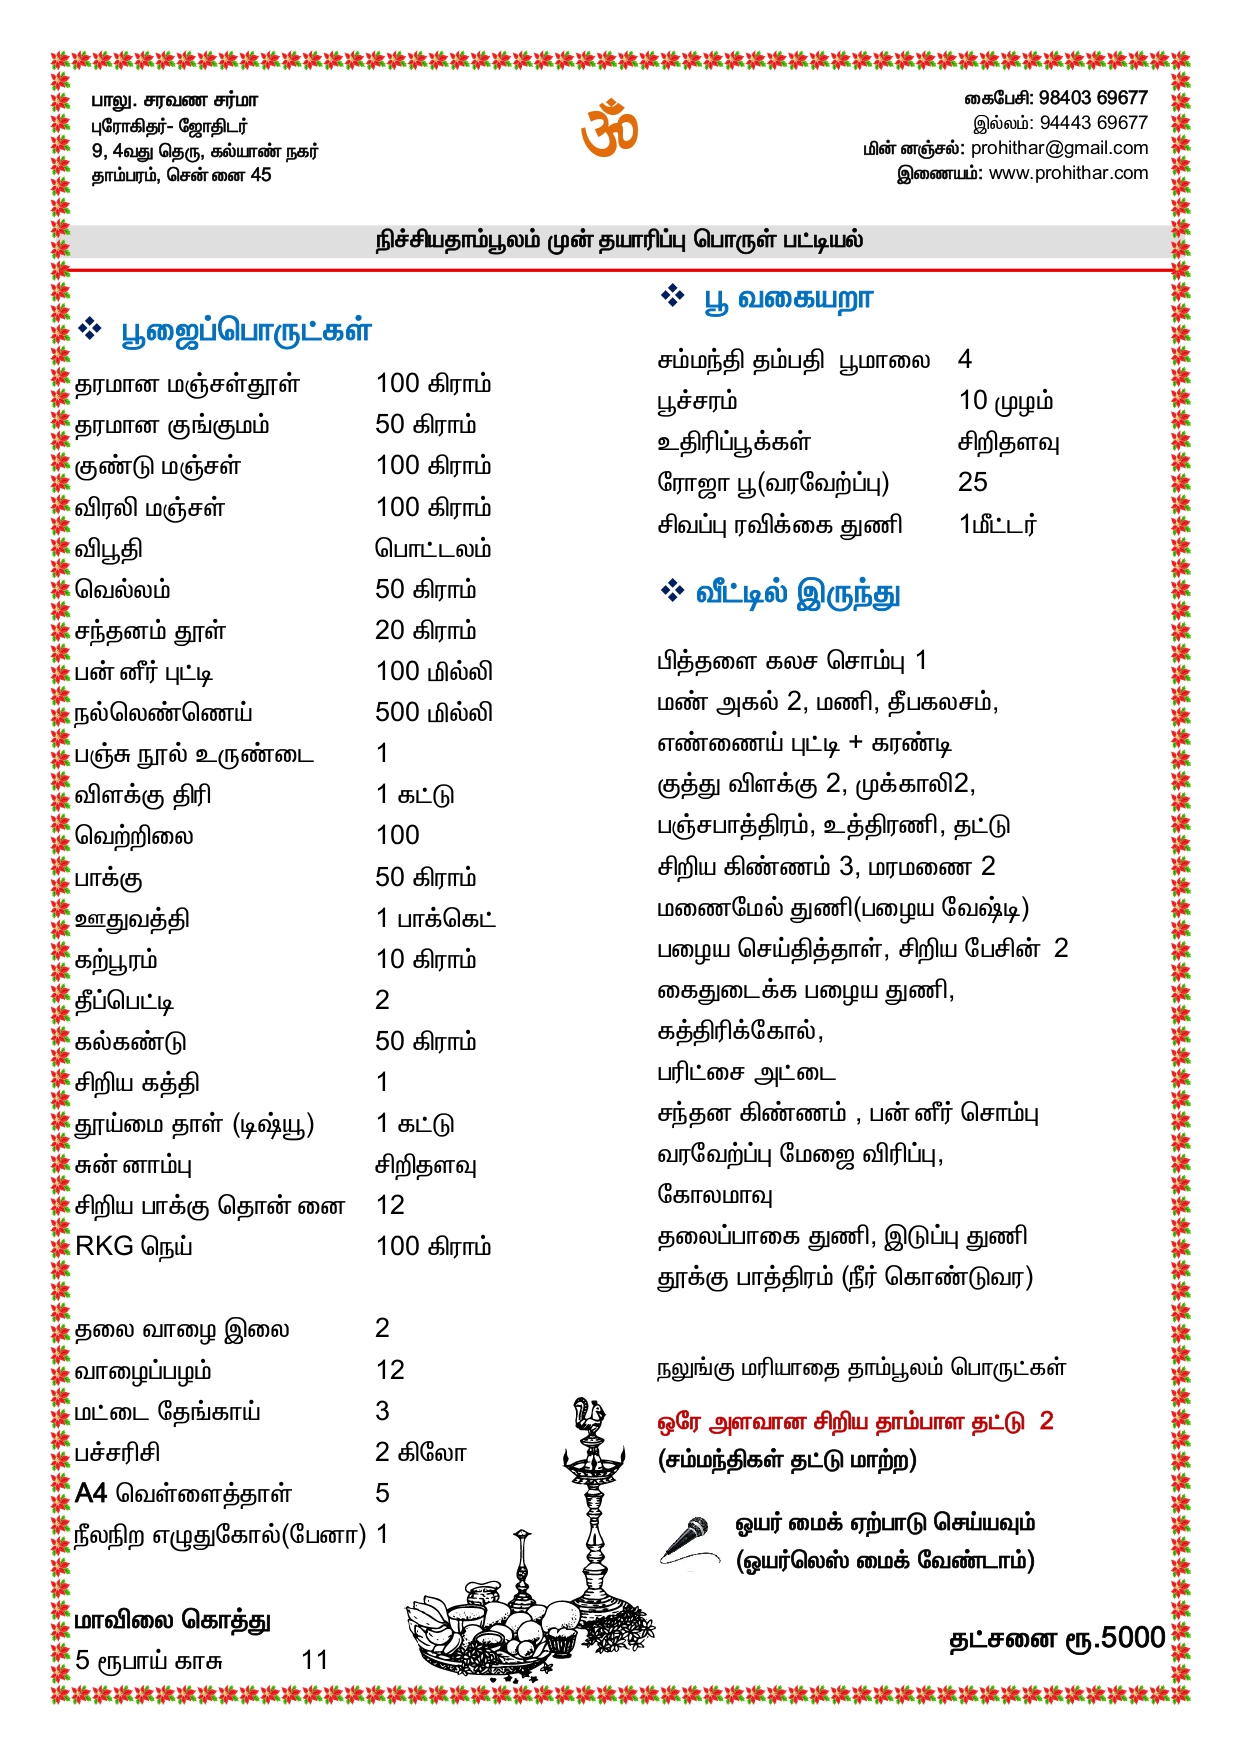 பாலு. சரவண சர்மா
புரோகிதர்- ஜோதிடர்
9, 4வது தெரு, கல்யாண் நகர்
தாம்பரம், சென்னை 45
ௐ
கைபேசி: 98403 69677
இல்லம்: 94443 69677
மின்னஞ்சல்: prohithar@gmail.com
இணையம்: www.prohithar.com
நிச்சியதாம்பூலம் முன் தயாரிப்பு பொருள் பட்டியல்
❖ பூஜைப்பொருட்கள்
தரமான மஞ்சள்தூள் 100 கிராம்
தரமான குங்குமம் 50 கிராம்
குண்டு மஞ்சள் 100 கிராம்
விரலி மஞ்சள் 100 கிராம்
விபூதி பொட்டலம்
வெல்லம் 50 கிராம்
சந்தனம் தூள் 20 கிராம்
பன்னீர் புட்டி 100 மில்லி
நல்லெண்ணெய் 500 மில்லி
பஞ்சு நூல் உருண்டை 1
விளக்கு திரி 1 கட்டு
வெற்றிலை 100
பாக்கு 50 கிராம்
ஊதுவத்தி 1 பாக்கெட்
கற்பூரம் 10 கிராம்
தீப்பெட்டி 2
கல்கண்டு 50 கிராம்
சிறிய கத்தி 1
தூய்மை தாள் (டிஷ்யூ) 1 கட்டு
சுன்னாம்பு சிறிதளவு
சிறிய பாக்கு தொன்னை 12
RKG நெய் 100 கிராம்
தலை வாழை இலை 2
வாழைப்பழம் 12
மட்டை தேங்காய் 3
பச்சரிசி 2 கிலோ
A4 வெள்ளைத்தாள் 5
நீலநிற எழுதுகோல்(பேனா) 1
மாவிலை கொத்து
5 ரூபாய் காசு 11
❖ பூ வகையறா
சம்மந்தி தம்பதி பூமாலை 4
பூச்சரம் 10 முழம்
உதிரிப்பூக்கள் சிறிதளவு
ரோஜா பூ(வரவேற்ப்பு) 25
சிவப்பு ரவிக்கை துணி 1மீட்டர்
❖ வீட்டில் இருந்து
பித்தளை கலச சொம்பு 1
மண் அகல் 2, மணி, தீபகலசம்,
எண்ணைய் புட்டி + கரண்டி
குத்து விளக்கு 2, முக்காலி2,
பஞ்சபாத்திரம், உத்திரணி, தட்டு
சிறிய கிண்ணம் 3, மரமணை 2
மணைமேல் துணி(பழைய வேஷ்டி)
பழைய செய்தித்தாள், சிறிய பேசின் 2
கைதுடைக்க பழைய துணி,
கத்திரிக்கோல்,
பரிட்சை அட்டை
சந்தன கிண்ணம் , பன்னீர் சொம்பு
வரவேற்ப்பு மேஜை விரிப்பு,
கோலமாவு
தலைப்பாகை துணி, இடுப்பு துணி
தூக்கு பாத்திரம் (நீர் கொண்டுவர)
நலுங்கு மரியாதை தாம்பூலம் பொருட்கள்
ஒரே அளவான சிறிய தாம்பாள தட்டு 2
(சம்மந்திகள் தட்டு மாற்ற)
ஒயர் மைக் ஏற்பாடு செய்யவும்
(ஒயர்லெஸ் மைக் வேண்டாம்)
தட்சனை ரூ.5000